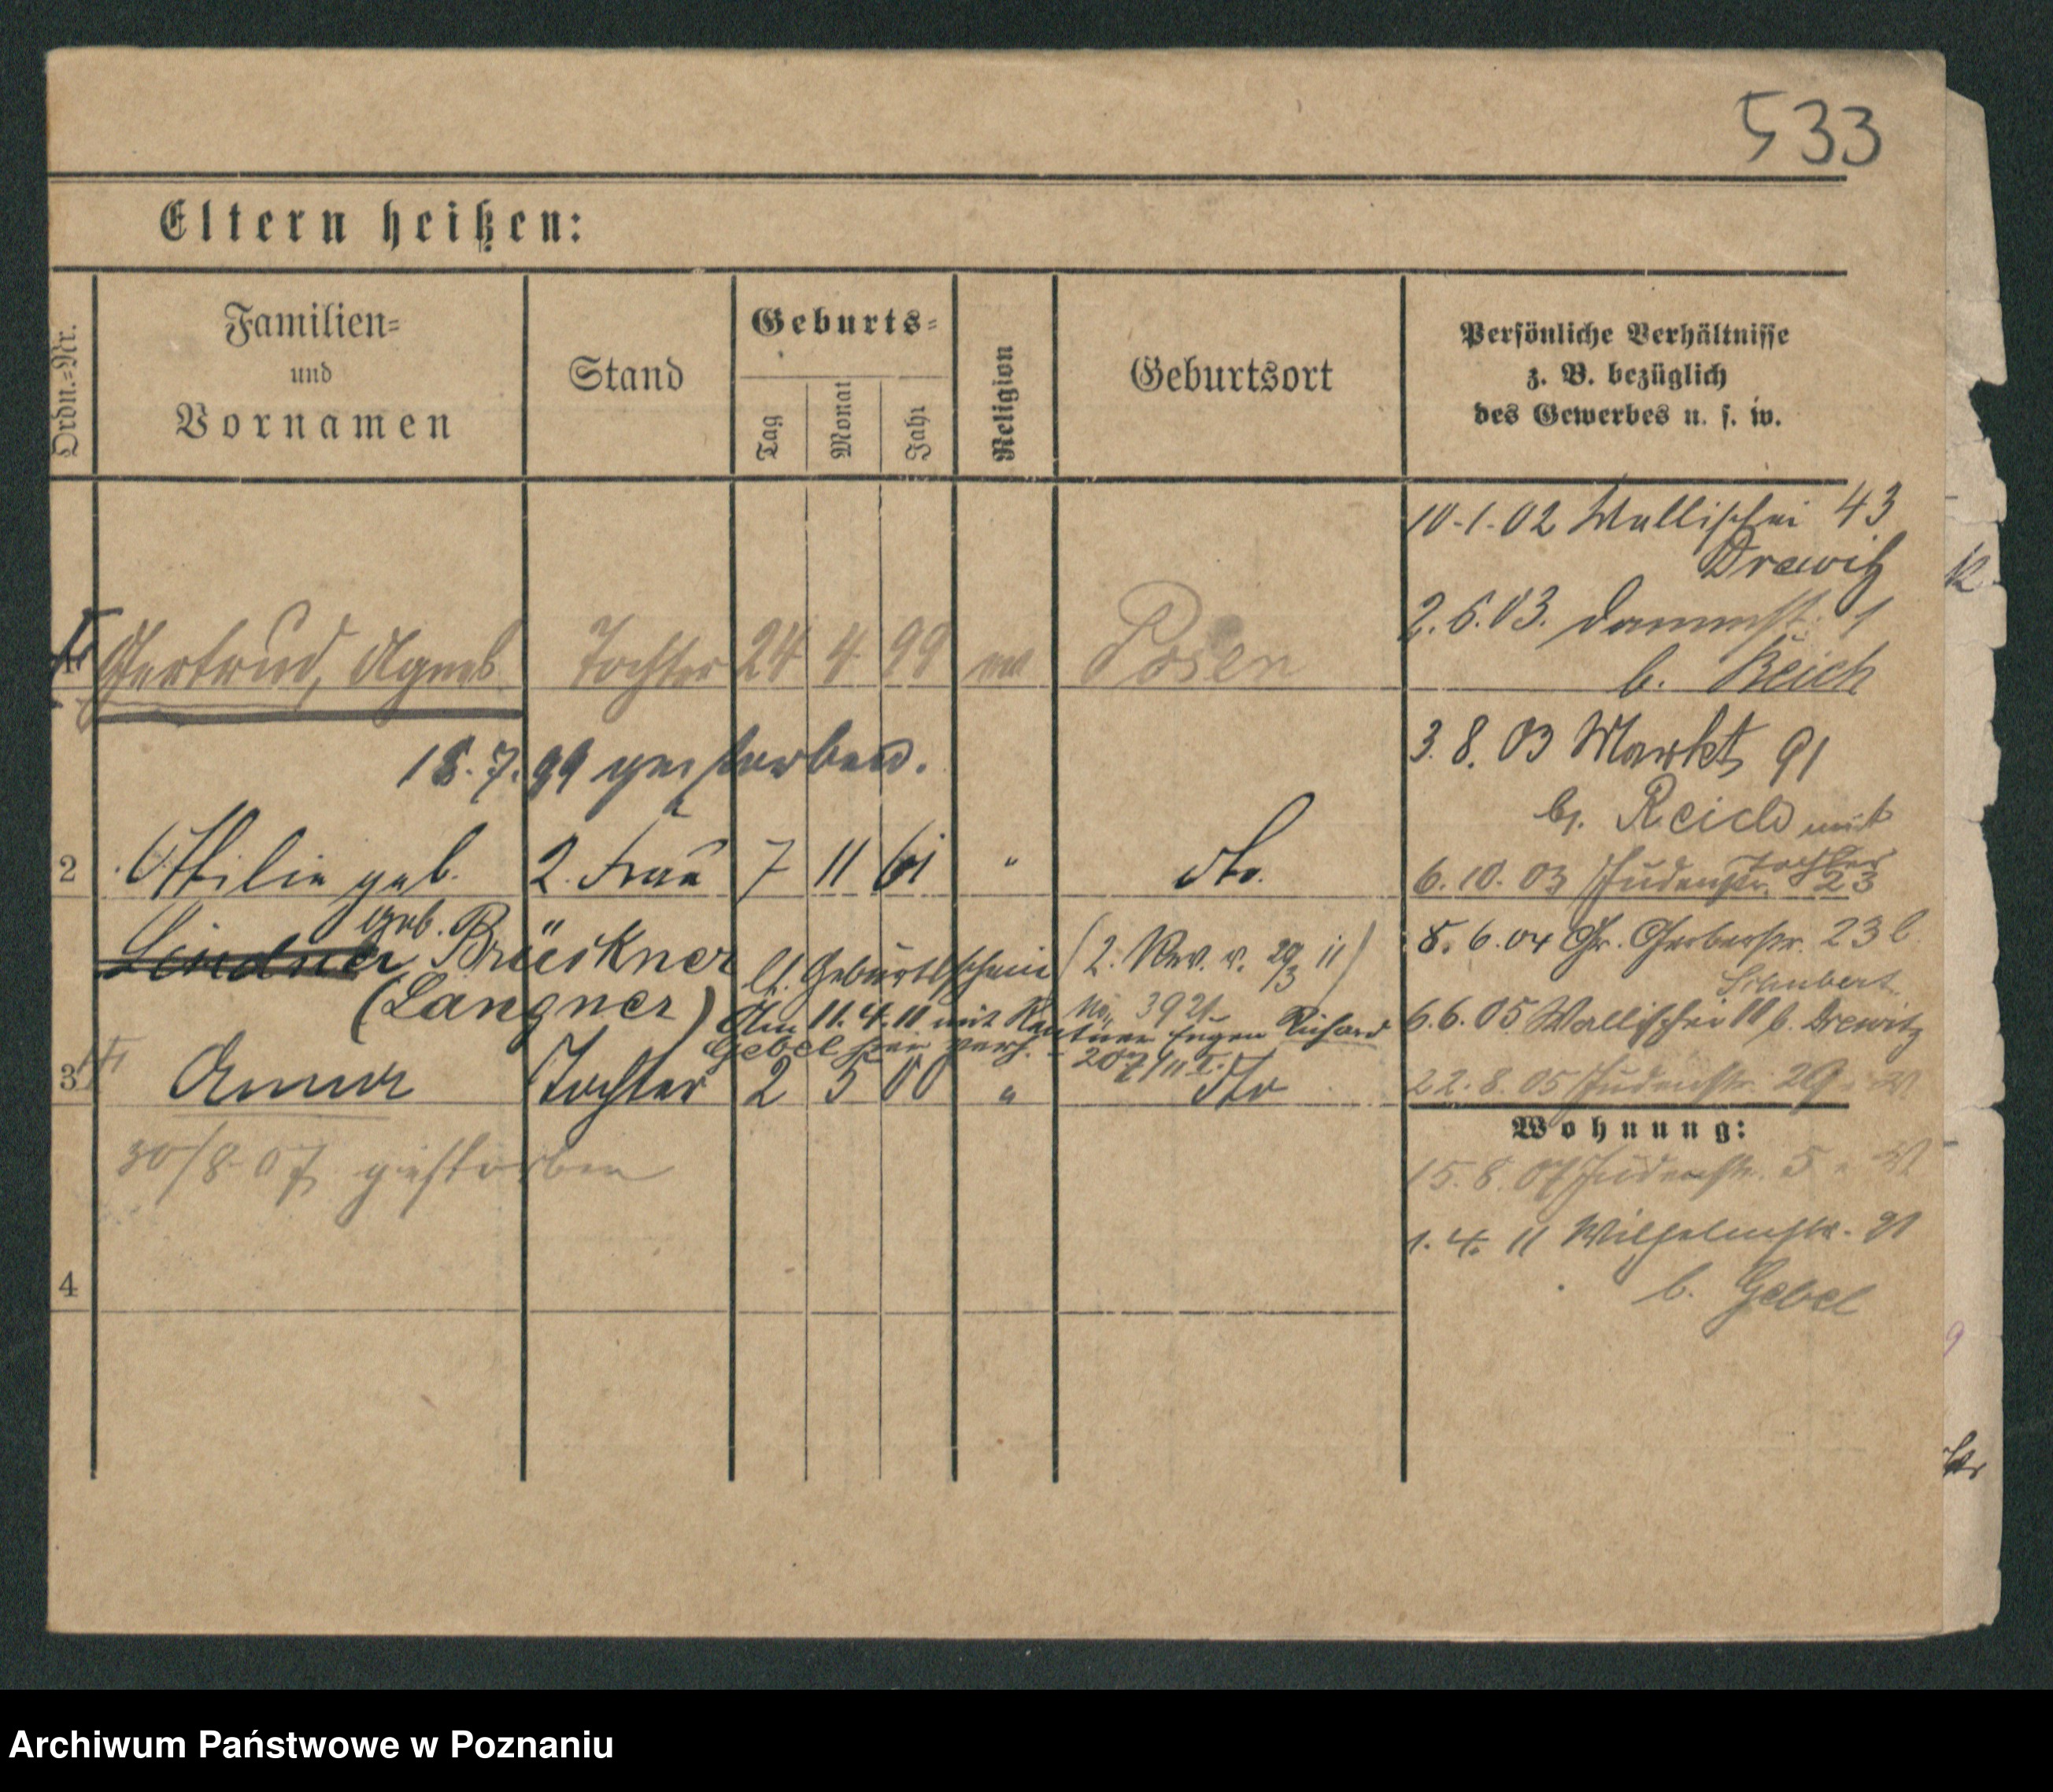 533
Eltern heißen:
Ordn.-Nr.
Familien-
und
Vornamen
Stand
Geburts-
Tag
Monat
Jahr
Religion
Geburtsort
Persönliche Verhältnisse
z. B. bezüglich
des Gewerbes u. s. w.
10-1-02 Wallischei 43
Drewitz
2.6.03. Dammstr. 1
b. Reich
Gertrud, Agnes Tochter 24 4 99 Posen
18.7.99 gestorben.
3.8.03 Markt 91
bj. Reich mit
Tochter
2 Ottilie geb. 2. Frau 7 11 61 " dto.
6.10.03 Judenstr. 23
geb.
Lindner Brückner lt. Geburtsschein (2. Rev. v. 29/3 11)
8.6.04 Gr. Gerberstr. 23
Schubert
(Langner) No 3921
Am 11.4.11 mit Rentner Eugen Richard
Gebel hier verh. 207/11 I.
6.6.05 Wallischei 11 b. Drewitz
3 Anna Tochter 2 5 00 " dto
22.8.05 Judenstr. 29
Wohnung:
30/8 07 gestorben
15.8.07 Judenstr. 5
1.4.11 Wilhelmstr. 21
b. Gebel
4
Archiwum Państwowe w Poznaniu